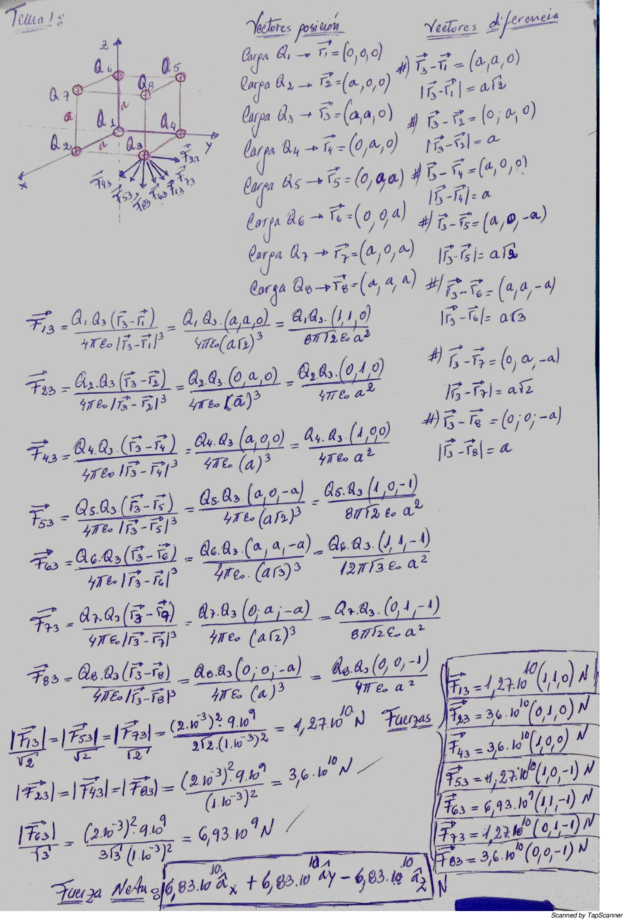 Tema 1:
Vectores posición
Vectores diferencia
Z
Q6
Q5
Q7
Q8
a
a
Q1
Q4
Q2
a
Q3
Y
X
F23
F43
F53
F83
F63
F13
F73
Carga Q1 → r1 = (0,0,0)
Carga Q2 → r2 = (a,0,0)
Carga Q3 → r3 = (a,a,0)
Carga Q4 → r4 = (0,a,0)
Carga Q5 → r5 = (0,a,a)
Carga Q6 → r6 = (0,0,a)
Carga Q7 → r7 = (a,0,a)
Carga Q8 → r8 = (a,a,a)
#) r3 - r1 = (a,a,0)
|r3 - r1| = a√2
#) r3 - r2 = (0;a,0)
|r3 - r2| = a
#) r3 - r4 = (a,0,0)
|r3 - r4| = a
#) r3 - r5 = (a,0,-a)
|r3 - r5| = a√2
#) r3 - r6 = (a,a,-a)
|r3 - r6| = a√3
#) r3 - r7 = (0,a,-a)
|r3 - r7| = a√2
#) r3 - r8 = (0;0;-a)
|r3 - r8| = a
F13 = Q1.Q3(r3 - r1) / 4πε0|r3 - r1|³ = Q1.Q3.(a,a,0) / 4πε0(a√2)³ = Q1.Q3.(1,1,0) / 8π√2 ε0 a²
F23 = Q2.Q3(r3 - r2) / 4πε0|r3 - r2|³ = Q2.Q3.(0,a,0) / 4πε0(a)³ = Q2Q3.(0,1,0) / 4πε0 a²
F43 = Q4.Q3.(r3 - r4) / 4πε0|r3 - r4|³ = Q4.Q3(a,0,0) / 4πε0(a)³ = Q4.Q3.(1,0,0) / 4πε0 a²
F53 = Q5.Q3(r3 - r5) / 4πε0|r3 - r5|³ = Q5.Q3(a,0,-a) / 4πε0(a√2)³ = Q5.Q3(1,0,-1) / 8π√2 ε0 a²
F63 = Q6.Q3(r3 - r6) / 4πε0|r3 - r6|³ = Q6.Q3.(a,a,-a) / 4πε0.(a√3)³ = Q6.Q3.(1,1,-1) / 12π√3 ε0 a²
F73 = Q7.Q3(r3 - r7) / 4πε0|r3 - r7|³ = Q7.Q3(0;a;-a) / 4πε0(a√2)³ = Q7.Q3.(0,1,-1) / 8π√2 ε0 a²
F83 = Q8.Q3(r3 - r8) / 4πε0|r3 - r8|³ = Q8.Q3(0;0;-a) / 4πε0(a)³ = Q8.Q3(0,0,-1) / 4πε0 a²
|F13|/√2 = |F53|/√2 = |F73|/√2 = (2.10⁻³)².9.10⁹ / 2√2.(1.10⁻³)² = 1,27.10¹⁰ N
|F23| = |F43| = |F83| = (2.10⁻³)².9.10⁹ / (1.10⁻³)² = 3,6.10¹⁰ N
|F63|/√3 = (2.10⁻³)².9.10⁹ / 3√3(1.10⁻³)² = 6,93.10⁹ N
Fuerzas
F13 = 1,27.10¹⁰(1,1,0) N
F23 = 3,6.10¹⁰(0,1,0) N
F43 = 3,6.10¹⁰(1,0,0) N
F53 = 1,27.10¹⁰(1,0,-1) N
F63 = 6,93.10⁹(1,1,-1) N
F73 = 1,27.10¹⁰(0,1,-1) N
F83 = 3,6.10¹⁰(0,0,-1) N
Fuerza Neta = 6,83.10¹⁰ âx + 6,83.10¹⁰ ây - 6,83.10¹⁰ âz N
Scanned by TapScanner